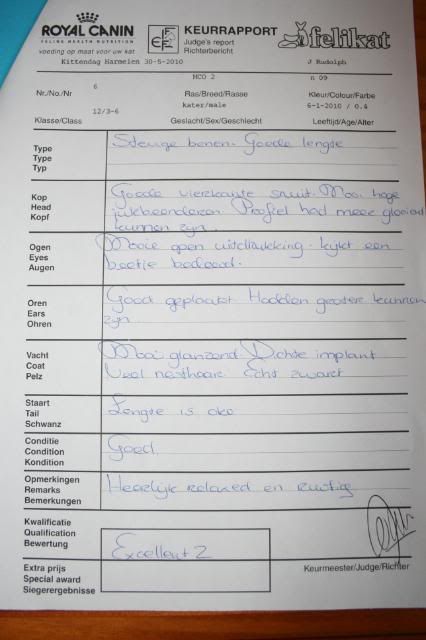 ROYAL CANIN
FELINE HEALTH NUTRITION
voeding op maat voor uw kat
FIFe
KEURRAPPORT
Judge's report
Richterbericht
felikat
Kittendag Harmelen 30-5-2010
J Rudolph
6
MCO 2
n 09
Nr./No./Nr
Ras/Breed/Rasse
Kleur/Colour/Farbe
12/3-6
kater/male
6-1-2010 / 0.4
Klasse/Class
Geslacht/Sex/Geschlecht
Leeftijd/Age/Alter
Type
Type
Typ
Stevige benen. Goede lengte
Kop
Head
Kopf
Goede vierkante snuit. Mooi hoge
jukbeenderen Profiel had meer glooiend
kunnen zijn.
Ogen
Eyes
Augen
Mooie open uitdrukking. kijkt een
beetje bedeesd.
Oren
Ears
Ohren
Goed geplaatst Hadden groter kunnen
zijn
Vacht
Coat
Pelz
Mooi glanzend Dichte implant
Veel nesthaar. Echt zwart
Staart
Tail
Schwanz
Lengte is oke
Conditie
Condition
Kondition
Goed
Opmerkingen
Remarks
Bemerkungen
Heerlijk relaxed en rustig
Kwalificatie
Qualification
Bewertung
Excellent 2
Extra prijs
Special award
Siegerergebnisse
Keurmeester/Judge/Richter